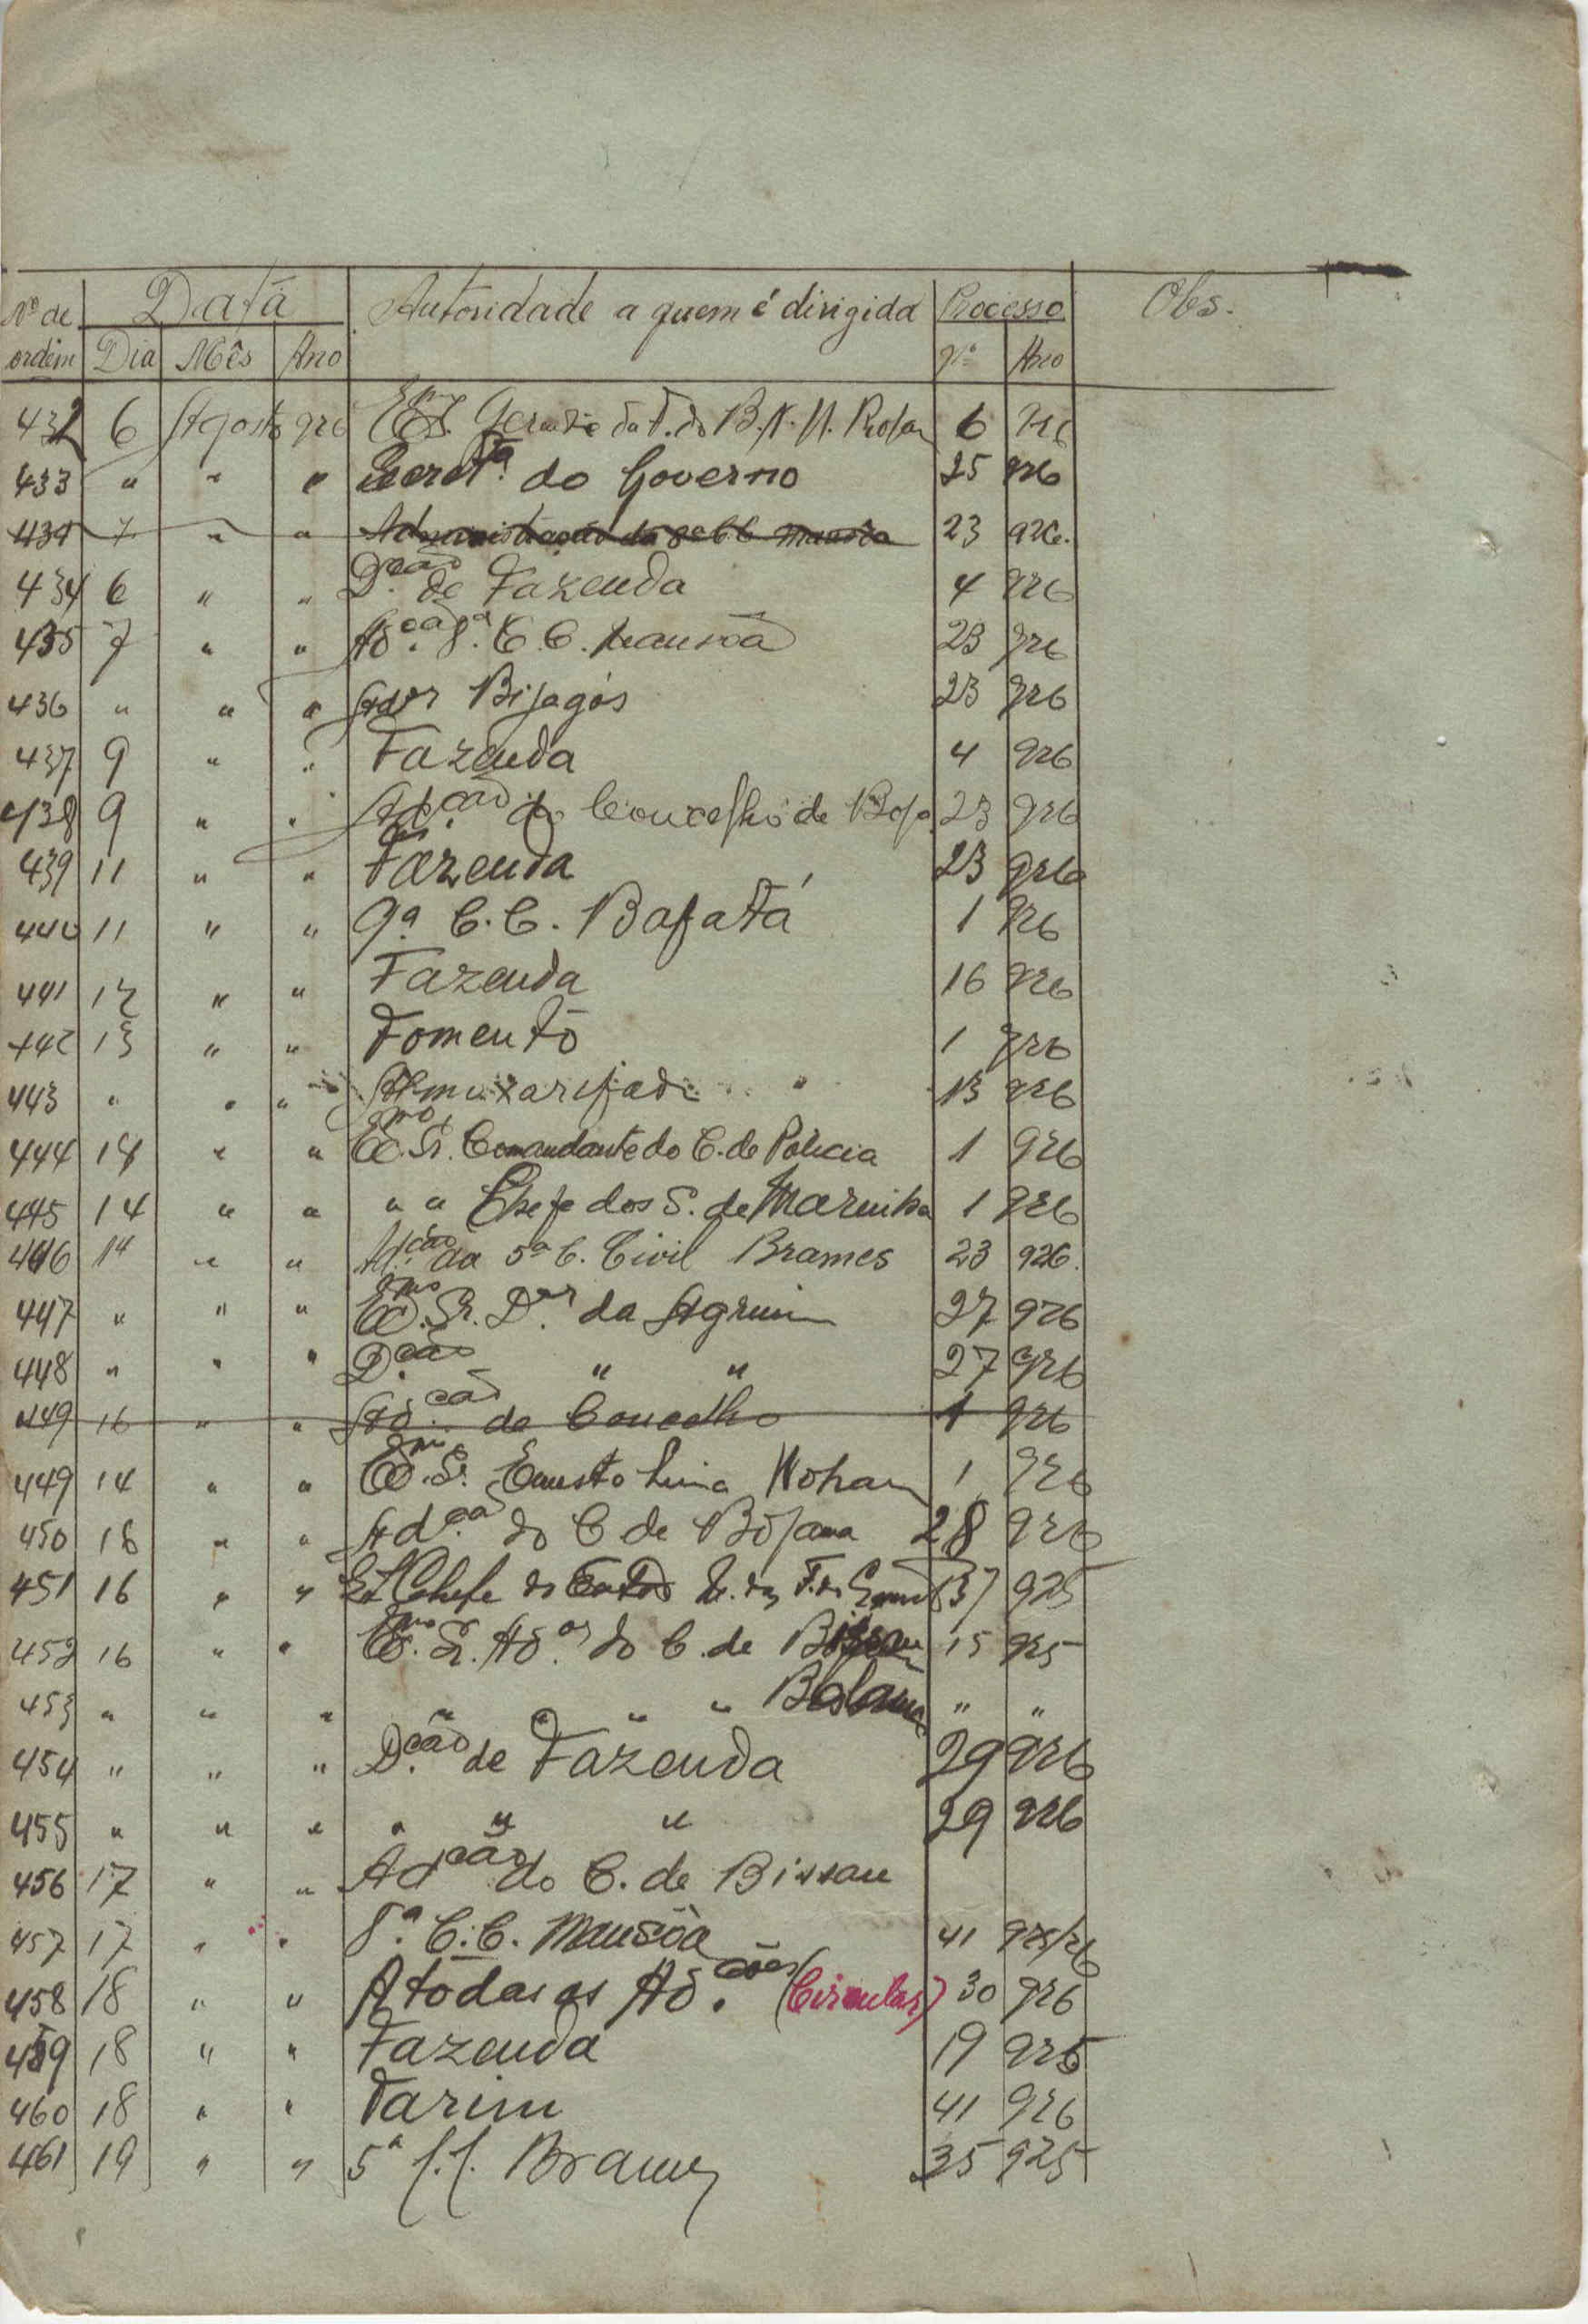 Nº de Data Autoridade a quem é dirigida Processo Obs.
ordem Dia Mês Ano Nº Ano
432 6 Agosto 926 Gerente da F. do B. N. U. 6 926
433 " " " Secretª. do Governo 25 926
434 7 " " Administração da 8ª C C Mansôa 23 926.
434 6 " " D.ção de Fazenda 4 926
435 7 " " Ad.ção 8ª. C. C. Mansôa 23 926
436 " " " Ador Bijagós 23 926
437 9 " " Fazenda 4 926
438 9 " " Ad.ção do Concelho de Bola 23 926
439 11 " " Fazenda 23 926
440 11 " " 9ª. C. C. Bafatá 1 926
441 12 " " Fazenda 16 926
442 13 " " Fomento 1 926
443 " " " Almoxarifado 13 926
444 14 " " Exmo. Sr. Comandante do C. de Policia 1 926
445 14 " " " " Chefe dos S. de Marinha 1 926
446 14 " " Ad.ção da 5ª C. Civil Brames 23 926.
447 " " " Exmo. Sr. D.or da Agrim 27 926
448 " " " D.ção " " 27 926
449 16 " " Ad.ção do Concelho 1 926
449 14 " " Exmo. Sr. Fausto Lima 1 926
450 16 " " Ad.ção do C de Bolama 28 926
451 16 " " Chefe do 925
452 16 " " Exmo. Sr. Ad.or do C. de Bissau 15 925
453 " " " " " " " Bolama " "
454 " " " D.ção de Fazenda 29 926
455 " " " " " " 29 926
456 17 " " Adção do C. de Bissau
457 17 " " 8.ª C. C. Mansôa 41 925/26
458 18 " " A tôdas as Ad.ções (Circular) 30 926
459 18 " " Fazenda 19 925
460 18 " " Farim 41 926
461 19 " " 5ª C. C. Brames 35 925